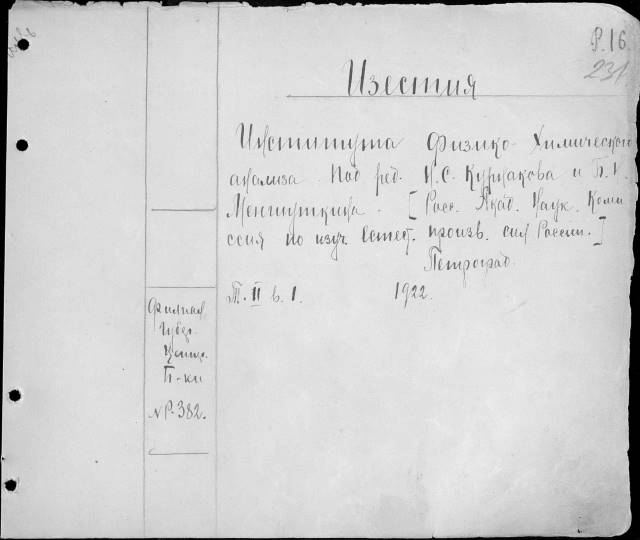 Р.16
231
Извѣстия
Института Физико-Химического
анализа. Под ред. Н.С. Курнакова и Б.Н.
Меншуткина. [Росс. Акад. Наук. Коми
ссия по изуч. естест. произв. сил России.]
Петроград.
Т. II в. 1. 1922.
Филиал
Губер.
Центр.
Б-ки
N Р-382.